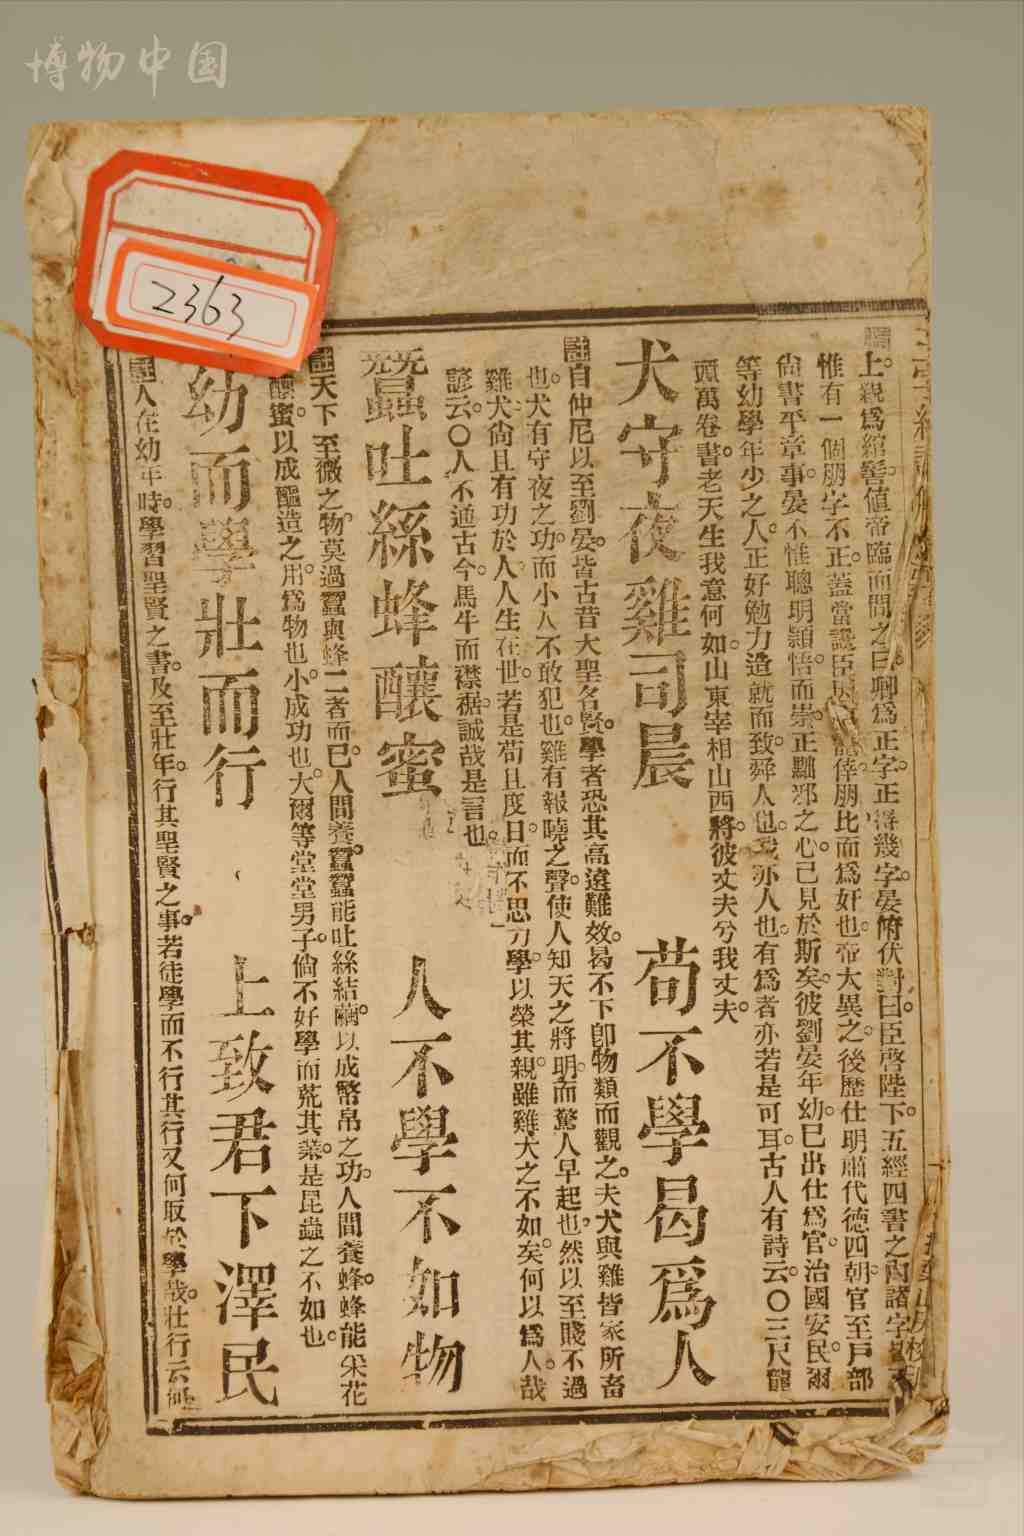 博物中国
2363
上親爲綰髻值帝臨而問之曰卿爲正字正得幾字晏俯伏對曰臣啓陛下五經四書之內諸字
惟有一個朋字不正蓋當讒臣朋比而爲奸也帝大異之後歷仕明肅代德四朝官至戶部
尙書平章事晏不惟聰明穎悟而崇正黜邪之心己見於斯矣彼劉晏年幼巳出仕爲官治國安民爾
等幼學年少之人正好勉力造就而致舜人也我亦人也有爲者亦若是可耳古人有詩云〇三尺龍
頭萬卷書老天生我意何如山東宰相山西將彼丈夫兮我丈夫
犬守夜雞司晨 苟不學曷爲人
註自仲尼以至劉晏皆古昔大聖名賢學者恐其高遠難效曷不下卽物類而觀之夫犬與雞皆家所畜
也犬有守夜之功而小人不敢犯也雞有報曉之聲使人知天之將明而驚人早起也然以至賤不過
雞犬尙且有功於人人生在世若是苟且度日而不思力學以榮其親雖雞犬之不如矣何以爲人哉
諺云〇人不通古今馬牛而襟裾誠哉是言也
蠶吐絲蜂釀蜜 人不學不如物
註天下至微之物莫過蠶與蜂二者而巳人間養蠶蠶能吐絲結繭以成幣帛之功人間養蜂蜂能采花
釀蜜以成醞造之用爲物也小成功也大爾等堂堂男子倘不好學而荒其業是昆蟲之不如也
幼而學壯而行 上致君下澤民
註人在幼年時學習聖賢之書及至壯年行其聖賢之事若徒學而不行其行又何取於學哉壯行云何